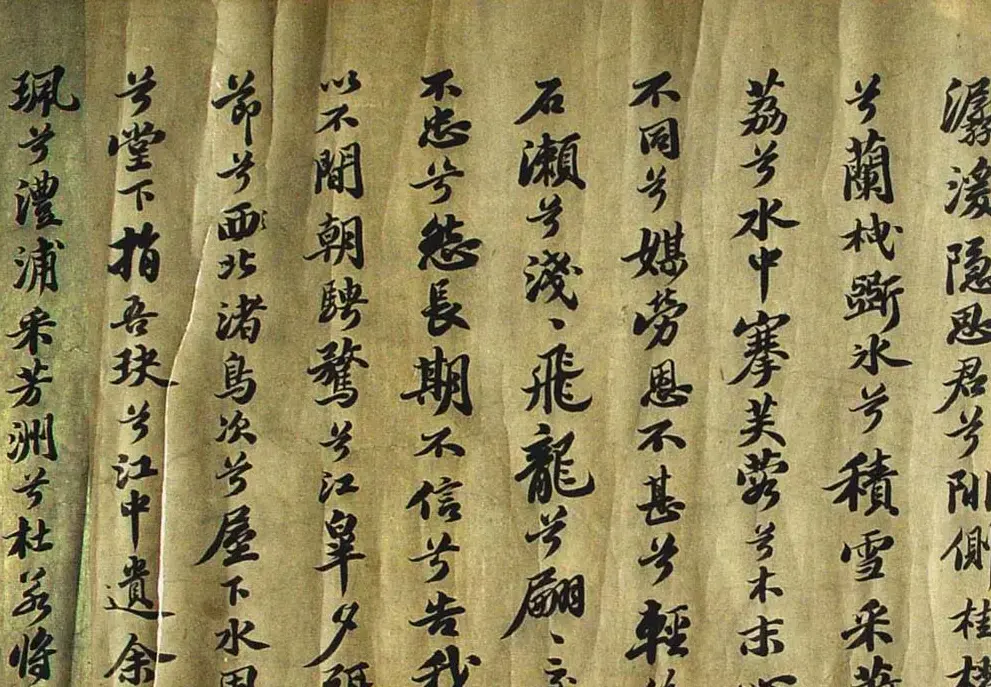 潺湲隠思君兮陫側桂櫂
兮蘭枻斵冰兮積雪采薜
荔兮水中搴芙蓉兮木末心
不同兮媒勞恩不甚兮輕絶
石瀨兮淺〻飛龍兮翩〻交
不忠兮怨長期不信兮告我
以不閒朝騁騖兮江皐夕弭
節兮西北渚鳥次兮屋下水周
兮堂下捐吾玦兮江中遺余
珮兮澧浦采芳洲兮杜若將